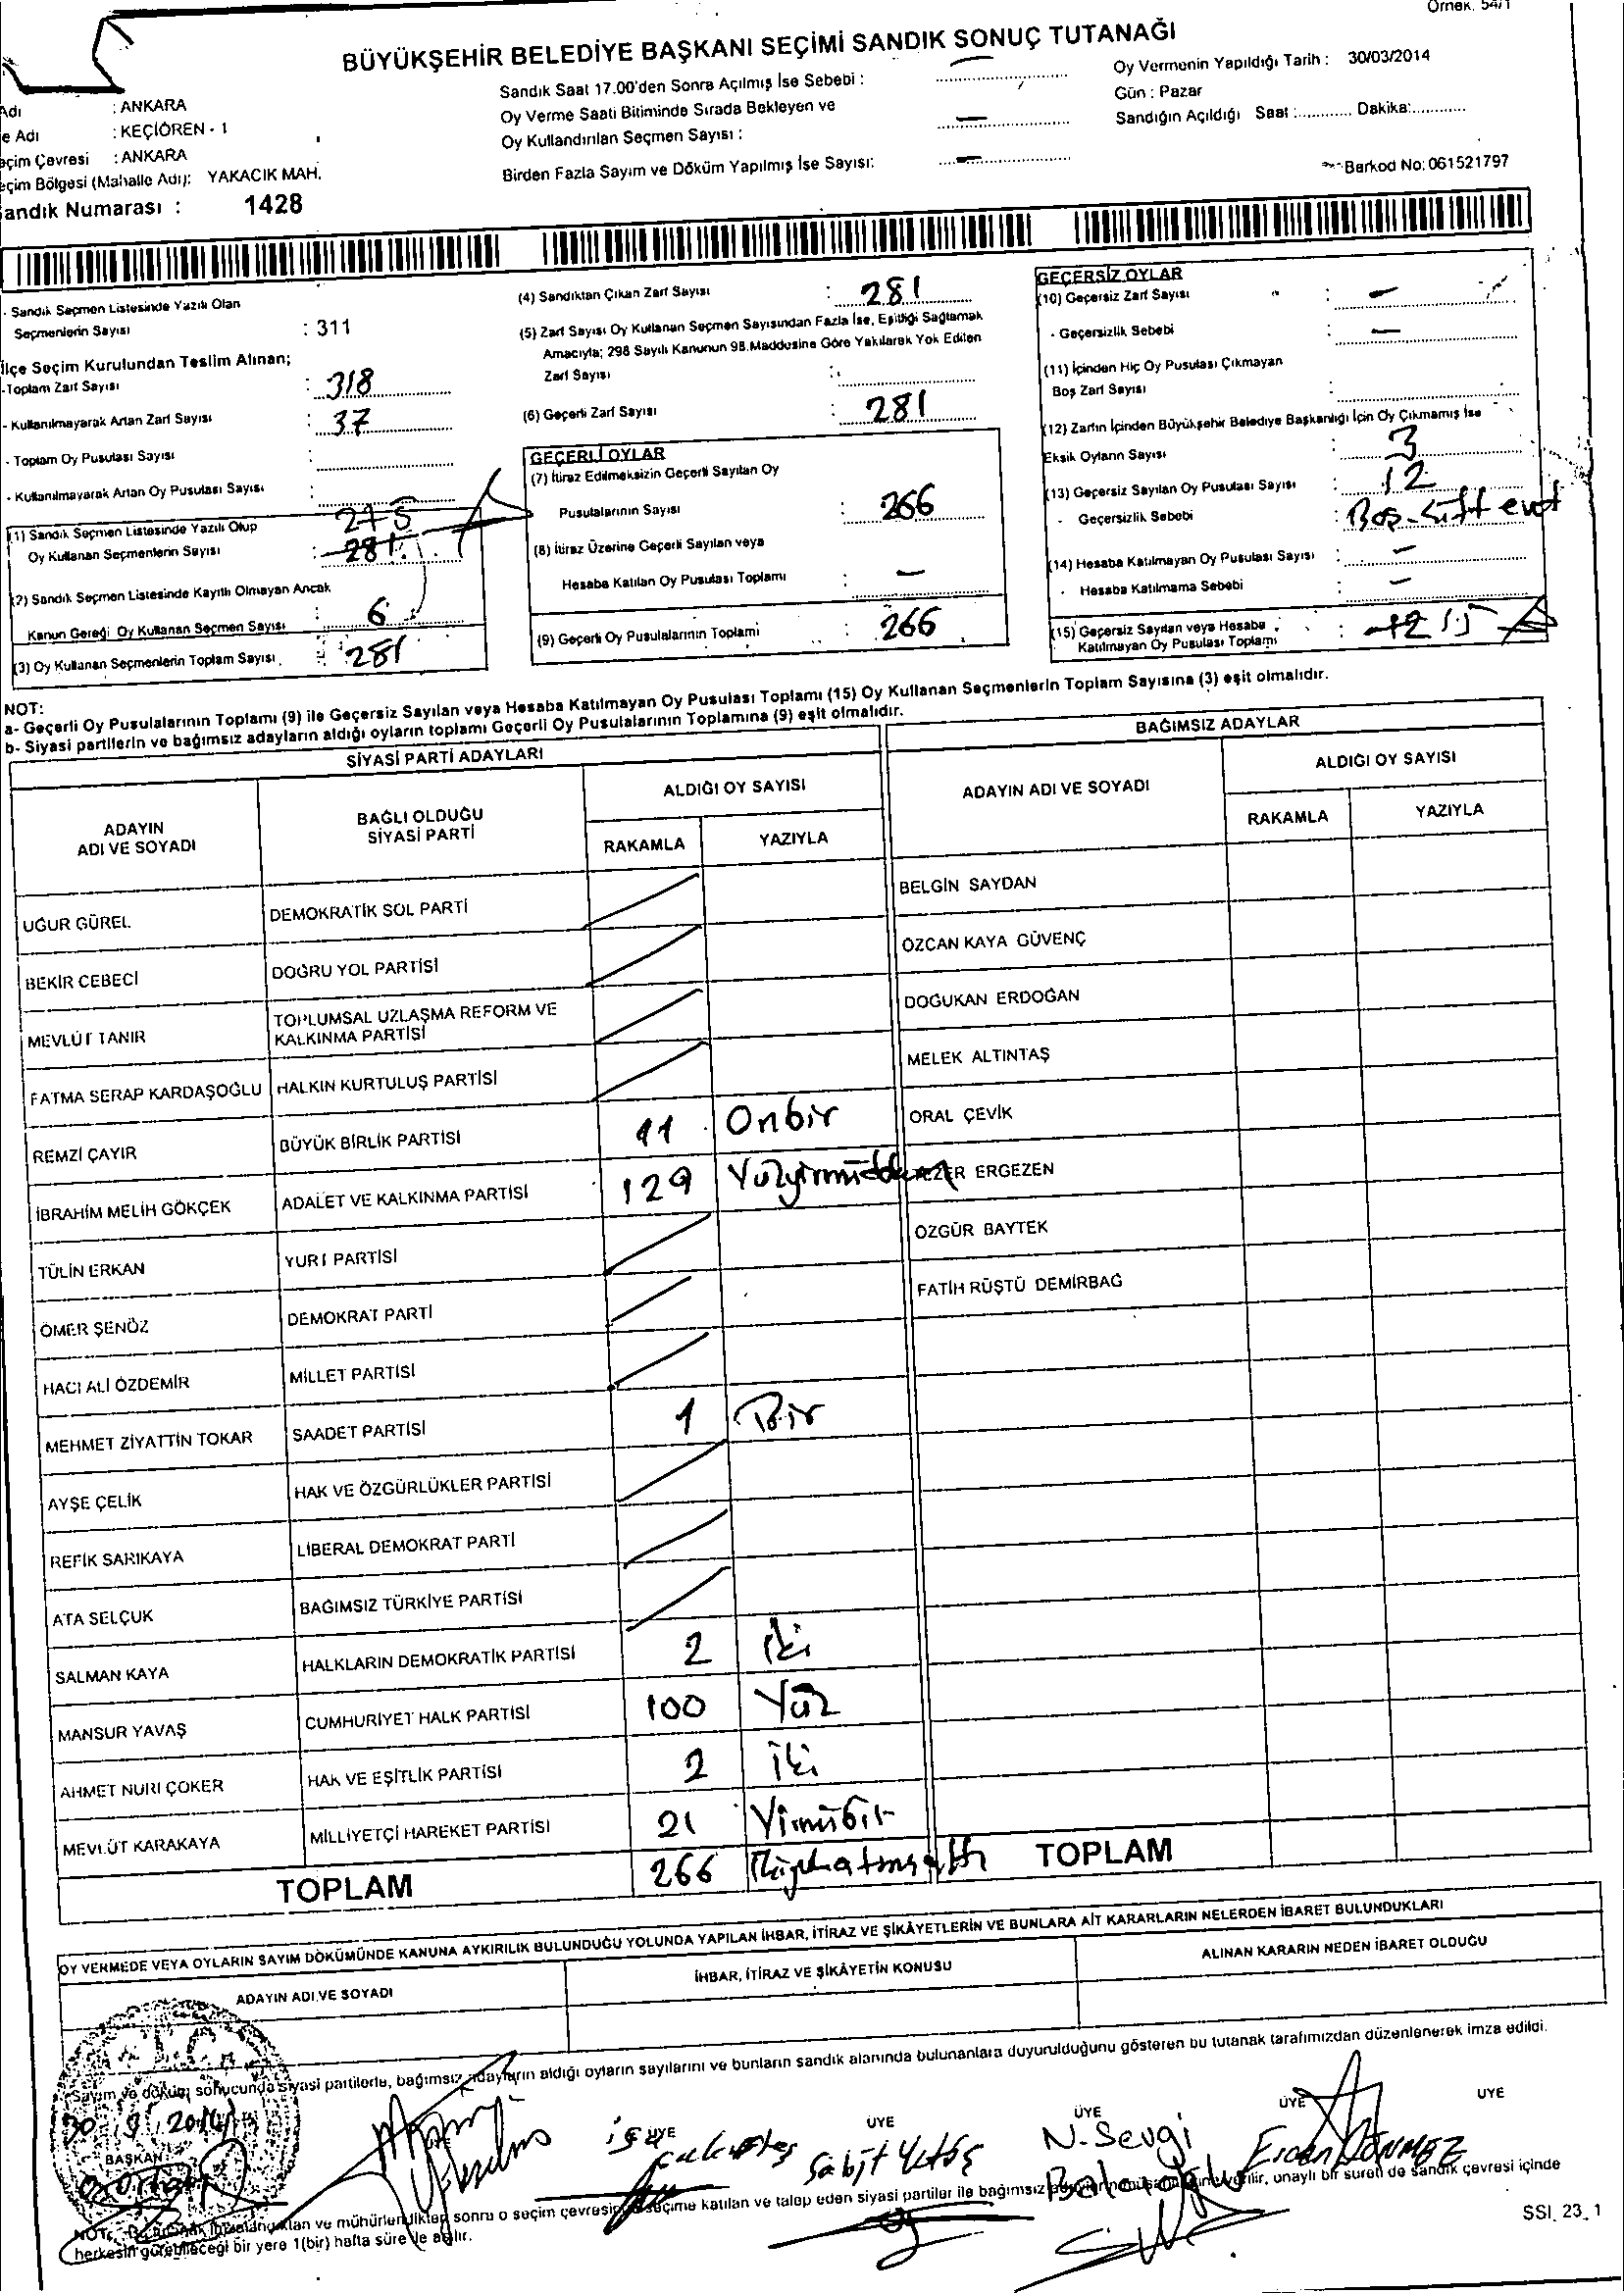 Örnek. 54/1
BÜYÜKŞEHİR BELEDİYE BAŞKANI SEÇİMİ SANDIK SONUÇ TUTANAĞI
Adı : ANKARA
e Adı : KEÇİÖREN - 1
eçim Çevresi : ANKARA
eçim Bölgesi (Mahalle Adı): YAKACIK MAH.
andık Numarası : 1428
Sandık Saat 17.00'den Sonra Açılmış İse Sebebi :
Oy Verme Saati Bitiminde Sırada Bekleyen ve
Oy Kullandırılan Seçmen Sayısı :
Birden Fazla Sayım ve Döküm Yapılmış İse Sayısı:
Oy Vermenin Yapıldığı Tarih : 30/03/2014
Gün : Pazar
Sandığın Açıldığı Saat :............ Dakika:............
Barkod No: 061521797
- Sandık Seçmen Listesinde Yazılı Olan
Seçmenlerin Sayısı : 311
İlçe Seçim Kurulundan Teslim Alınan;
-Toplam Zarf Sayısı : 318
- Kullanılmayarak Artan Zarf Sayısı : 37
- Toplam Oy Pusulası Sayısı :
- Kullanılmayarak Artan Oy Pusulası Sayısı :
(1) Sandık Seçmen Listesinde Yazılı Olup 275
Oy Kullanan Seçmenlerin Sayısı : 281
(2) Sandık Seçmen Listesinde Kayıtlı Olmayan Ancak
Kanun Gereği Oy Kullanan Seçmen Sayısı : 6
(3) Oy Kullanan Seçmenlerin Toplam Sayısı : 281
(4) Sandıktan Çıkan Zarf Sayısı : 281
(5) Zarf Sayısı Oy Kullanan Seçmen Sayısından Fazla İse, Eşitliği Sağlamak
Amacıyla; 298 Sayılı Kanunun 98.Maddesine Göre Yakılarak Yok Edilen
Zarf Sayısı :
(6) Geçerli Zarf Sayısı : 281
GEÇERLİ OYLAR
(7) İtiraz Edilmeksizin Geçerli Sayılan Oy
Pusulalarının Sayısı : 266
(8) İtiraz Üzerine Geçerli Sayılan veya
Hesaba Katılan Oy Pusulası Toplamı : -
(9) Geçerli Oy Pusulalarının Toplamı : 266
GEÇERSİZ OYLAR
(10) Geçersiz Zarf Sayısı : -
- Geçersizlik Sebebi : -
(11) İçinden Hiç Oy Pusulası Çıkmayan
Boş Zarf Sayısı :
(12) Zarfın İçinden Büyükşehir Belediye Başkanlığı İçin Oy Çıkmamış İse
Eksik Oyların Sayısı : 3
(13) Geçersiz Sayılan Oy Pusulası Sayısı : 12
- Geçersizlik Sebebi : Boş-Çift evet
(14) Hesaba Katılmayan Oy Pusulası Sayısı : -
- Hesaba Katılmama Sebebi : -
(15) Geçersiz Sayılan veya Hesaba
Katılmayan Oy Pusulası Toplamı : 12 15
NOT:
a- Geçerli Oy Pusulalarının Toplamı (9) ile Geçersiz Sayılan veya Hesaba Katılmayan Oy Pusulası Toplamı (15) Oy Kullanan Seçmenlerin Toplam Sayısına (3) eşit olmalıdır.
b- Siyasi partilerin ve bağımsız adayların aldığı oyların toplamı Geçerli Oy Pusulalarının Toplamına (9) eşit olmalıdır.
SİYASİ PARTİ ADAYLARI
BAĞIMSIZ ADAYLAR
ADAYIN ADI VE SOYADI
BAĞLI OLDUĞU SİYASİ PARTİ
ALDIĞI OY SAYISI
RAKAMLA YAZIYLA
ADAYIN ADI VE SOYADI
ALDIĞI OY SAYISI
RAKAMLA YAZIYLA
UĞUR GÜREL DEMOKRATİK SOL PARTİ
BEKİR CEBECİ DOĞRU YOL PARTİSİ
MEVLÜT TANIR TOPLUMSAL UZLAŞMA REFORM VE KALKINMA PARTİSİ
FATMA SERAP KARDAŞOĞLU HALKIN KURTULUŞ PARTİSİ
REMZİ ÇAYIR BÜYÜK BİRLİK PARTİSİ 11 Onbir
İBRAHİM MELİH GÖKÇEK ADALET VE KALKINMA PARTİSİ 129
TÜLİN ERKAN YURT PARTİSİ
ÖMER ŞENÖZ DEMOKRAT PARTİ
HACI ALİ ÖZDEMİR MİLLET PARTİSİ
MEHMET ZİYATTİN TOKAR SAADET PARTİSİ 1 Bir
AYŞE ÇELİK HAK VE ÖZGÜRLÜKLER PARTİSİ
REFİK SARIKAYA LİBERAL DEMOKRAT PARTİ
ATA SELÇUK BAĞIMSIZ TÜRKİYE PARTİSİ
SALMAN KAYA HALKLARIN DEMOKRATİK PARTİSİ 2 iki
MANSUR YAVAŞ CUMHURİYET HALK PARTİSİ 100 Yüz
AHMET NURİ ÇOKER HAK VE EŞİTLİK PARTİSİ 2 iki
MEVLÜT KARAKAYA MİLLİYETÇİ HAREKET PARTİSİ 21 Yirmibir
TOPLAM 266
BELGİN SAYDAN
ÖZCAN KAYA GÜVENÇ
DOĞUKAN ERDOĞAN
MELEK ALTINTAŞ
ORAL ÇEVİK
ERGEZEN
ÖZGÜR BAYTEK
FATİH RÜŞTÜ DEMİRBAĞ
TOPLAM
OY VERMEDE VEYA OYLARIN SAYIM DÖKÜMÜNDE KANUNA AYKIRILIK BULUNDUĞU YOLUNDA YAPILAN İHBAR, İTİRAZ VE ŞİKÂYETLERİN VE BUNLARA AİT KARARLARIN NELERDEN İBARET BULUNDUKLARI
ADAYIN ADI VE SOYADI
İHBAR, İTİRAZ VE ŞİKÂYETİN KONUSU
ALINAN KARARIN NEDEN İBARET OLDUĞU
Sayım ve döküm sonucunda siyasi partilerle, bağımsız adayların aldığı oyların sayılarını ve bunların sandık alanında bulunanlara duyurulduğunu gösteren bu tutanak tarafımızdan düzenlenerek imza edildi.
BAŞKAN
ÜYE ÜYE ÜYE ÜYE ÜYE
N. Sevgi
NOT: Bu tutanak sonra o seçim çevresinde seçime katılan ve talep eden siyasi partiler ile bağımsız verilir, onaylı bir sureti de sandık çevresi içinde
herkesin görebileceği bir yere 1(bir) hafta süre ile asılır.
SSI_23_1